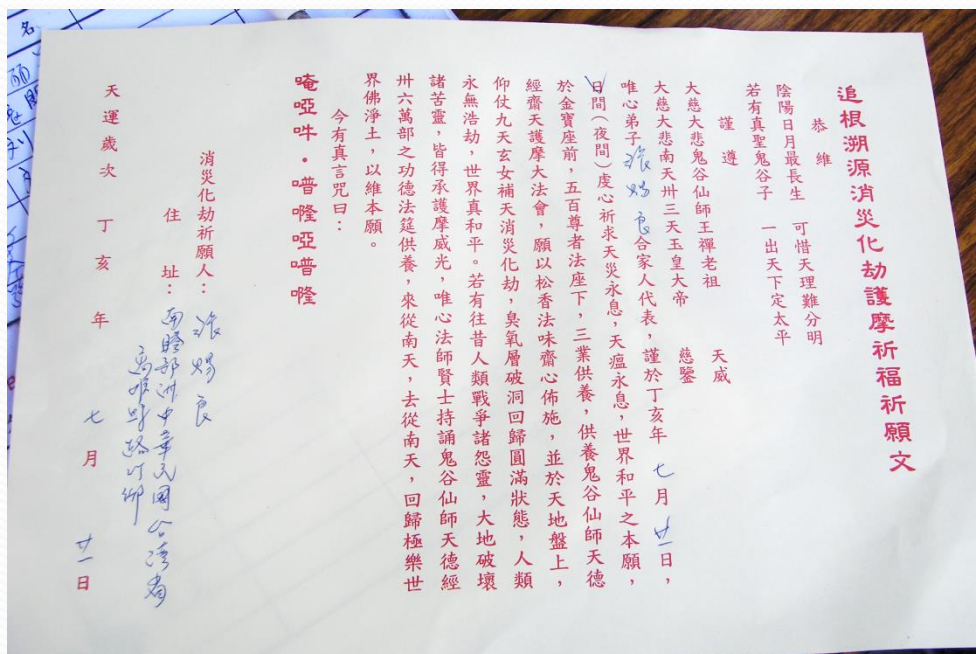 追根溯源消災化劫護摩祈福祈願文
恭維
陰陽日月最長生 可惜天理難分明
若有真聖鬼谷子 一出天下定太平
謹遵 天威
大慈大悲鬼谷仙師王禪老祖 慈鑒
大慈大悲南天卅三天玉皇大帝
唯心弟子張賜良合家人代表,謹於丁亥年 七月廿一日,
日間(夜間)虔心祈求天災永息,天瘟永息,世界和平之本願,
於金寶座前,五百尊者法座下,三業供養,供養鬼谷仙師天德
經齋天護摩大法會,願以松香法味齋心佈施,並於天地盤上,
仰仗九天玄女補天消災化劫,臭氧層破洞回歸圓滿狀態,人類
永無浩劫,世界真和平。若有往昔人類戰爭諸怨靈,大地破壞
諸苦靈,皆得承護摩威光,唯心法師賢士持誦鬼谷仙師天德經
卅六萬部之功德法筵供養,來從南天,去從南天,回歸極樂世
界佛淨土,以維本願。
今有真言咒曰:
唵啞吽・喈隆啞喈隆
消災化劫祈願人:張賜良
住址:南贍部洲中華民國台灣省
高雄縣路竹鄉
天運歲次 丁亥 年 七月 廿一日
名